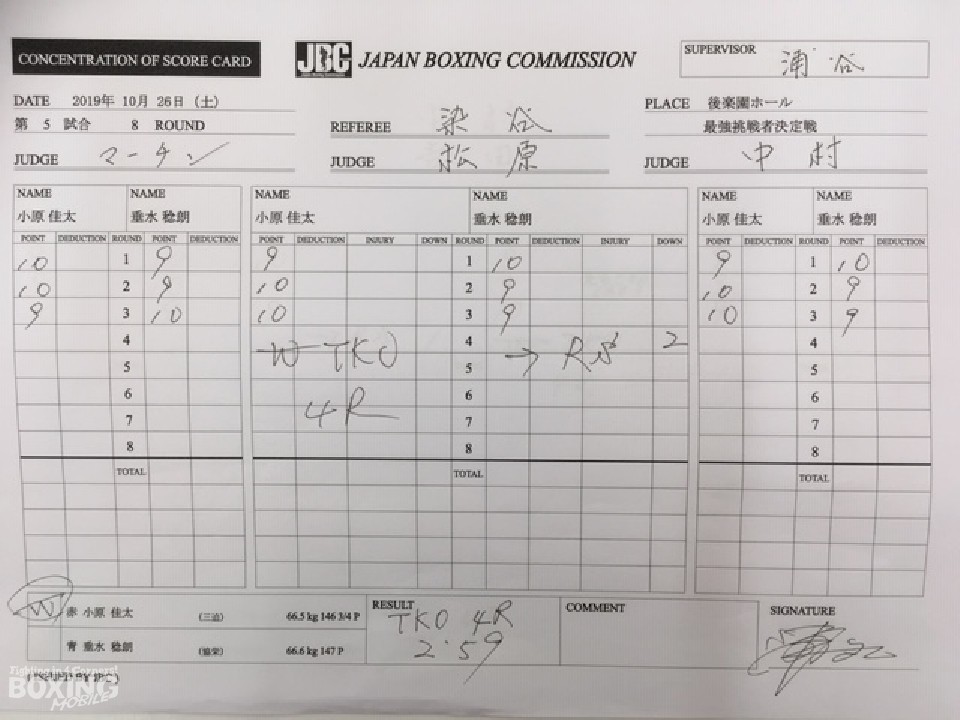 CONCENTRATION OF SCORE CARD
JBC JAPAN BOXING COMMISSION
SUPERVISOR 浦谷
DATE 2019年 10月 26日 (土)
PLACE 後楽園ホール
第 5 試合 8 ROUND
REFEREE 染谷
最強挑戦者決定戦
JUDGE マーチン
JUDGE 松原
JUDGE 中村
NAME NAME NAME NAME NAME NAME
小原 佳太 垂水 稔朗 小原 佳太 垂水 稔朗 小原 佳太 垂水 稔朗
POINT DEDUCTION ROUND POINT DEDUCTION POINT DEDUCTION INJURY DOWN ROUND POINT DEDUCTION INJURY DOWN POINT DEDUCTION ROUND POINT DEDUCTION
10 1 9 9 1 10 9 1 10
10 2 9 10 2 9 10 2 9
9 3 10 10 3 9 10 3 9
4 W TKO 4 → 2 4
5 5 5
6 4R 6 6
7 7 7
8 8 8
TOTAL TOTAL TOTAL
W 赤 小原 佳太 (三迫) 66.5 kg 146 3/4 P
青 垂水 稔朗 (協栄) 66.6 kg 147 P
RESULT TKO 4R
2:59
COMMENT
SIGNATURE
Fighting in 4 Corners!
BOXING
MOBILE